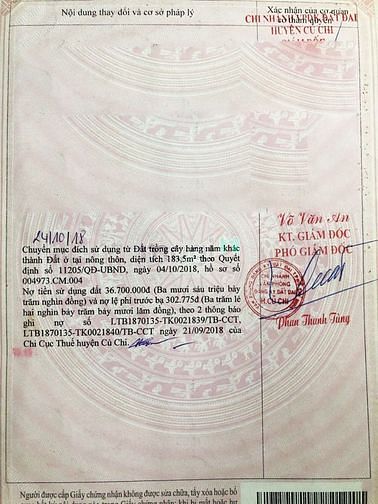 Nội dung thay đổi và cơ sở pháp lý
Xác nhận của cơ quan
có thẩm quyền
CHI NHÁNH VPĐK ĐẤT ĐAI
HUYỆN CỦ CHI
GIÁM ĐỐC
24/10/18
Chuyển mục đích sử dụng từ Đất trồng cây hàng năm khác
thành Đất ở tại nông thôn, diện tích 183,5m² theo Quyết
định số 11205/QĐ-UBND, ngày 04/10/2018, hồ sơ số
004973.CM.004
Nợ tiền sử dụng đất 36.700.000đ (Ba mươi sáu triệu bảy
trăm nghìn đồng) và nợ lệ phí trước bạ 302.775đ (Ba trăm lẻ
hai nghìn bảy trăm bảy mươi lăm đồng), theo 2 thông báo
ghi nợ số LTB1870135-TK0021839/TB-CCT,
LTB1870135-TK0021840/TB-CCT ngày 21/09/2018 của
Chi Cục Thuế huyện Củ Chi.
Võ Văn An
KT. GIÁM ĐỐC
PHÓ GIÁM ĐỐC
CHI NHÁNH
VĂN PHÒNG
ĐĂNG KÝ ĐẤT ĐAI
H.CỦ CHI
Phan Thanh Tùng
Người được cấp Giấy chứng nhận không được sửa chữa, tẩy xóa hoặc bổ